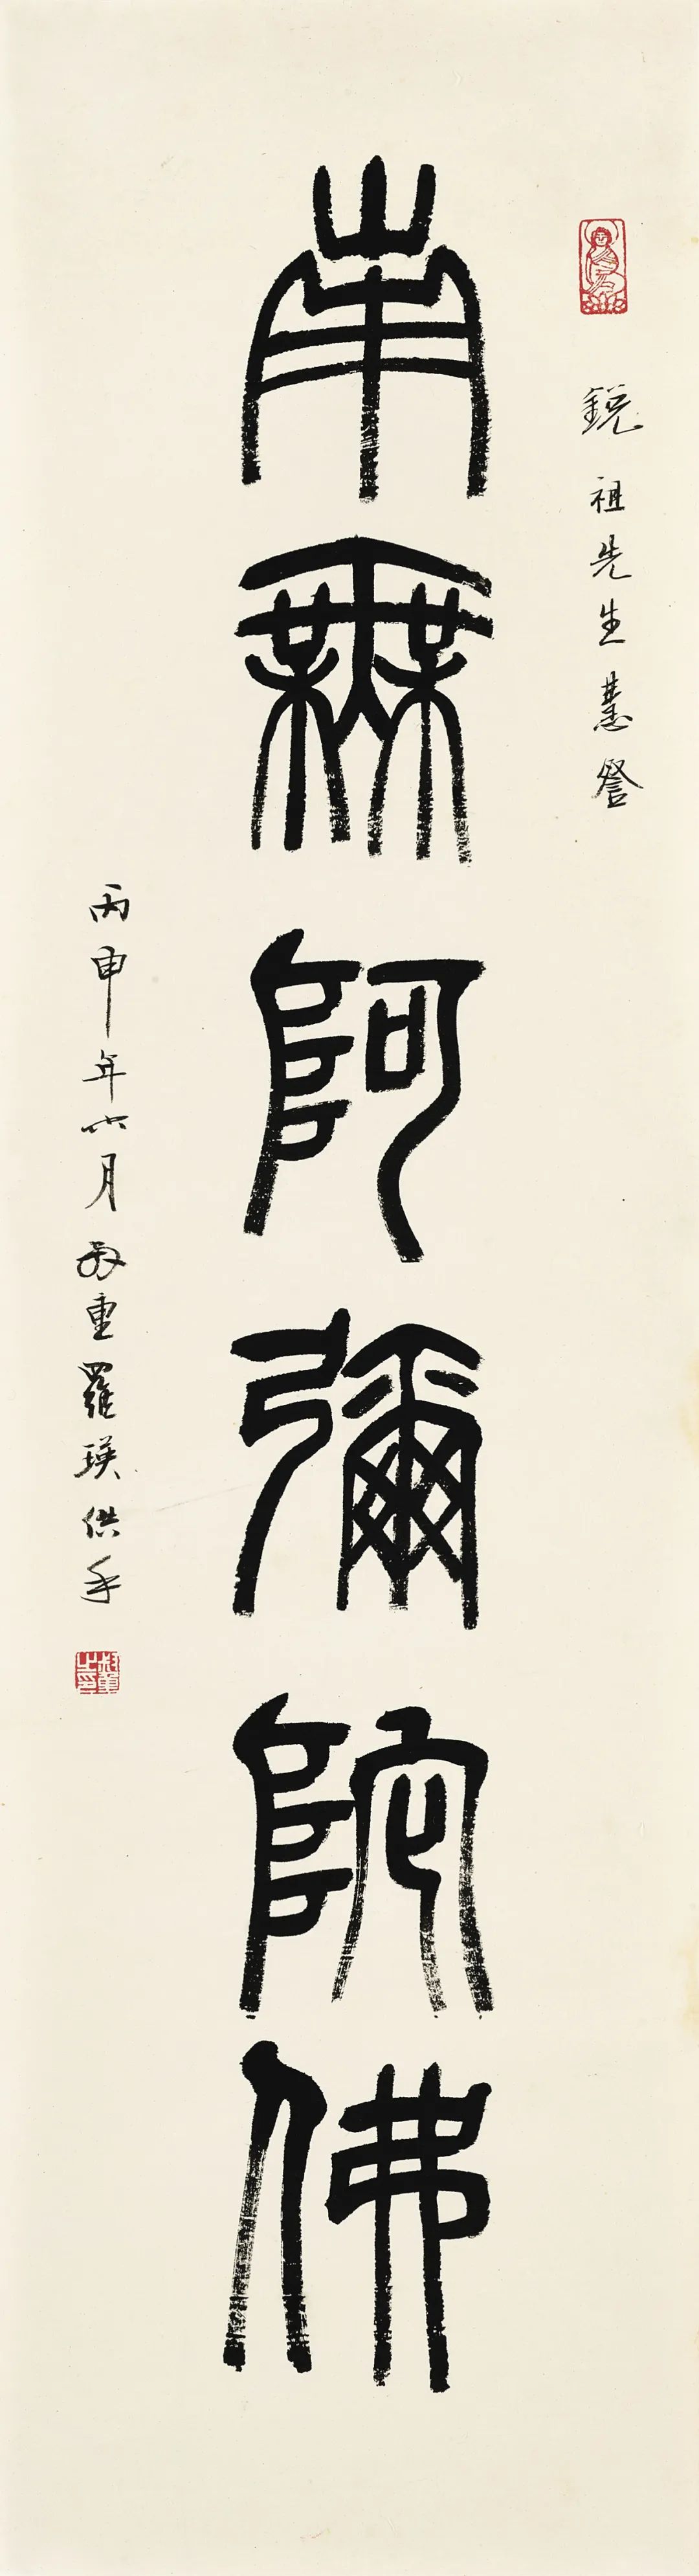 銳祖先生慧詧
南無阿彌陀佛
丙申年六月叔重羅瑛供手
叔重之印